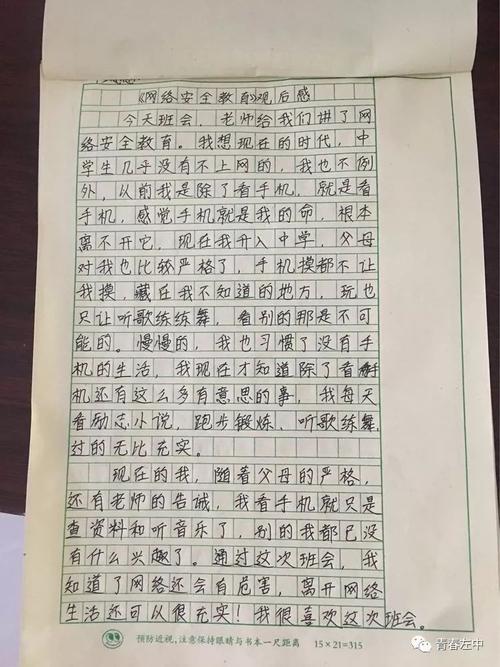 《网络安全教育》观后感
今天班会，老师给我们讲了网
络安全教育。我想现在的时代，中
学生几乎没有不上网的，我也不例
外，以前我是除了看手机，就是看
手机，感觉手机就是我的命，根本
离不开它，现在我升入中学，父母
对我也比较严格了，手机摸都不让
我摸，藏在我不知道的地方，玩也
只让听歌练练舞，看别的那是不可
能的。慢慢的，我也习惯了没有手
机的生活，我现在才知道除了看手
机还有这么多有意思的事，我每天
看励志小说，跑步锻炼、听歌练舞
过的无比充实。
现在的我，随着父母的严格，
还有老师的告诫，我看手机就只是
查资料和听音乐了，别的我都已没
有什么兴趣了。通过这次班会，我
知道了网络还会有危害，离开网络
生活还可以很充实！我很喜欢这次班会。
预防近视，注意保持眼睛与书本一尺距离 15×21=315
青春左中